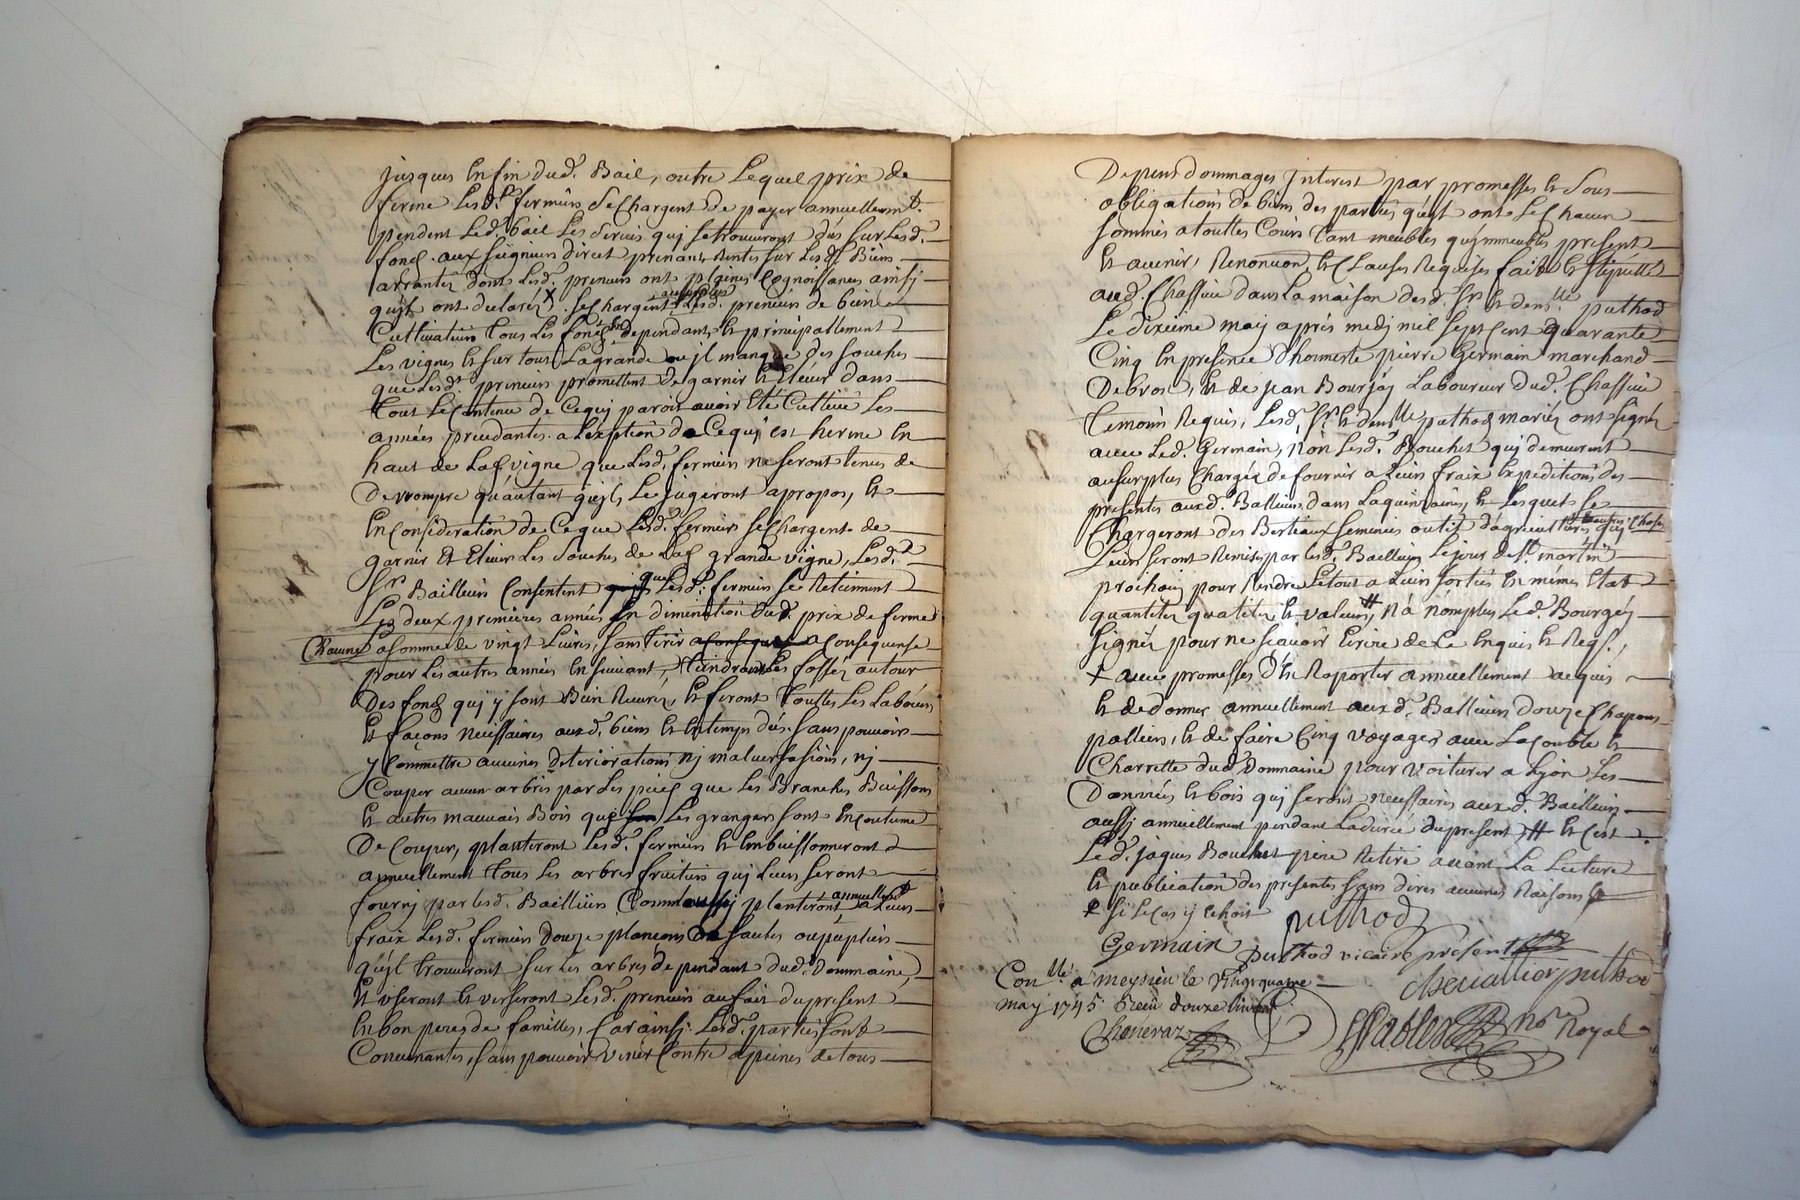 jusques En fin dud. Bail, outre Lequel prix de
ferme Lesd. fermiers se Chargent de payer annuellemt.
pendent Led. bail Les servis quj se trouveront dus sur Lesd.
fonds aux seigneurs direct prenant Rentes sur Lesd. Biens
arrantés dont Lesd. preneurs ont pleines Cognoissances ainsj
qujls ont declarés X se Chargent au surplus Lesd. preneurs de bien
Cultiver tous Les fonds En dependants, Et principallement
Les vignes Et sur tout La grande ou jl manque des souches
que Lesd. preneurs promettent de garnir Et Elever dans
tout Le Contenu de Cequj paroit avoir Eté Cultivé Les
années precedantes a L'exeption de Cequj est herme En
haut de Lad. vigne que Lesd. fermiers ne seront tenus de
Derrompre qu'autant qujls Le jugeront apropos, Et
En Consideration de Ceque Lesd. fermiers se Chargent de
garnir Et Elever Les souches de Lad. grande vigne, Lesd.
Srs Bailleurs Consentent que Lesd. fermiers se Retiennent
Les deux premieres années En diminution dud. prix de ferme
Chacune La somme de vingt Livres, sans tirer a Consequense
pour Les autres années En suivant, Les fossés autour
Des fonds quj y sont Bien Et feront touttes Les Labours
Et façons necessaires auxd. biens Et En temps dus sans pouvoir
y Commettre aucunes deteriorations nj malversasions, nj
Couper aucun arbres par Les pieds que Les Branches Buissons
Et autres mauvais Bois que Les grangers sont En coutume
De Couper, planteront Lesd. fermiers Et Embuissonneront
annuellement tous Les arbres fruitiers quj Leurs seront
fournj par Lesd. Bailleurs Comme aussj planteront annuellemt. a Leurs
fraix Lesd. fermiers douze plançons De saules ou peupliers
qu'jls trouveront sur Les arbres dependant dud. Dommaine,
Et useront Et verseront Lesd. preneurs au fait du present
En bon peres de familles, Car ainsj Lesd. parties sont
Convenantes, sans pouvoir venir Contre a peines de tous
Depens dommages jnterest par promesses Et sous
obligations de biens des parties qu'jls ont Se Chacun
sommis a touttes Cours tant meubles qu'jmmeubles present
Et avenir, Renonçon, Et Clauses Requises fait Et stipullé
aud. Chassieu dans La maison desd. Sr. Et demlle puthod
Le dixiéme maÿ aprés medj mil sept Cent quarante
Cinq En presence d'honneste pierre Germain marchand
De bron, Et de jean Bourjaj Laboureur dud. Chassieu
temoins Requis, Lesd. Sr. Et demlle puthod mariés ont signés
avec Led. Germain, non Lesd. Bouchet quj demeurent
au surplus Chargés de fournir a Leurs fraix Expeditions des
presentes auxd. Bailleurs dans La quinzaine, Et Lesquels se
Chargeront des Bestiaux semences outils d'agriculture Et autres Choses quj
Leurs seront Remis par Lesd. Bailleurs Le jour de st. martin
prochain pour Rendre Le tout a Leurs sorties En mémes Etat
quantités qualités Et valeurs, # N'a nomplus Led. Bourgej
signés pour ne sçavoir Ecrire de Ce Enquis Et Reqs.,
X avec promesses d'En Raporter annuellement acquis
Et de donner annuellement auxd. Bailleurs douze Chapons
paillers, Et de faire Cinq voyages avec La Couble Et
Charrette dud. Dommaine pour voiturer a Lyon Les
Danrées Et bois quj seront necessaires auxd. Bailleurs
aussj annuellement pendant La durée du present # Et C'est
Led. jaques Bouchet pere Retiré avant La Lecture
Et publication des presentes sans dires aucunes Raisons
# si Le Cas y Echoit puthod
Germain puthod vicaire present
Conllé. a meysieu le vingt quatre chevallier puthod
may 1745. Reçu douze livres
Cheneraz nore. Royal